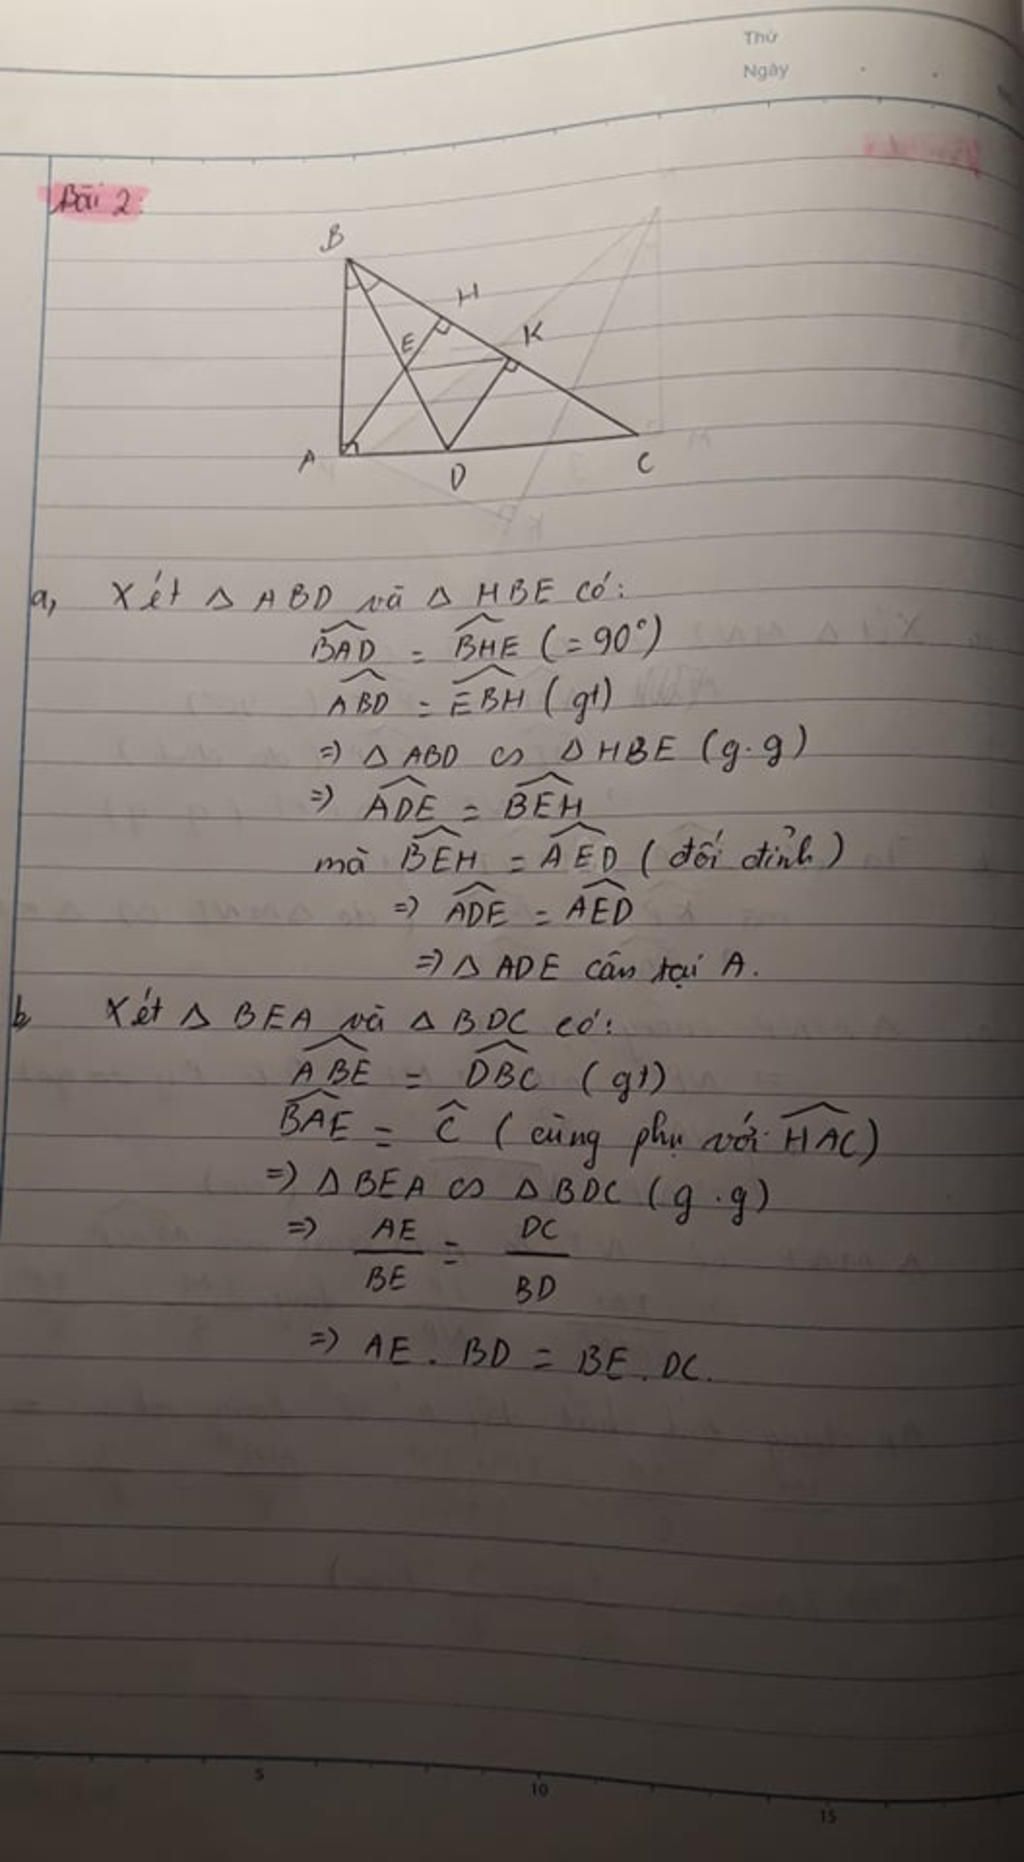 Thứ
Ngày
Bài 2:
B
H
E
K
A
D
C
a, Xét Δ ABD và Δ HBE có:
$\widehat{BAD}$ = $\widehat{BHE}$ (= 90°)
$\widehat{ABD}$ = $\widehat{EBH}$ (gt)
=> Δ ABD ∽ Δ HBE (g.g)
=> $\widehat{ADE}$ = $\widehat{BEH}$
mà $\widehat{BEH}$ = $\widehat{AED}$ (đối đỉnh)
=> $\widehat{ADE}$ = $\widehat{AED}$
=> Δ ADE cân tại A.
b Xét Δ BEA và Δ BDC có:
$\widehat{ABE}$ = $\widehat{DBC}$ (gt)
$\widehat{BAE}$ = $\widehat{C}$ (cùng phụ với $\widehat{HAC}$)
=> Δ BEA ∽ Δ BDC (g.g)
=> $\frac{AE}{BE}$ = $\frac{DC}{BD}$
=> AE . BD = BE . DC.
5 10 15